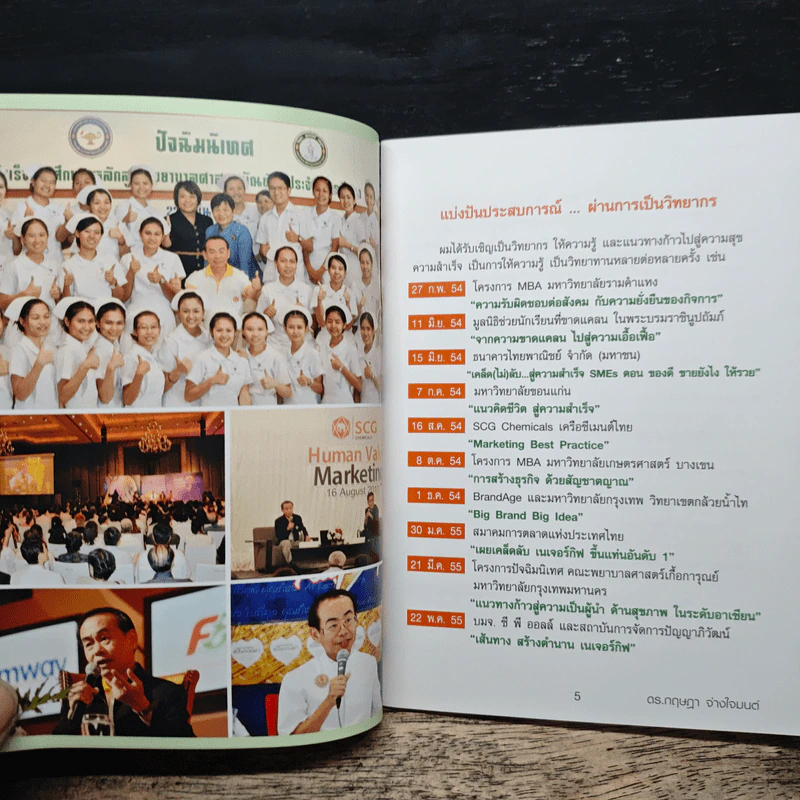 ปัจฉิมนิเทศ
SCG
CHEMICALS
Human Val
Marketing
16 August 2011
mway
แบ่งปันประสบการณ์ ... ผ่านการเป็นวิทยากร
ผมได้รับเชิญเป็นวิทยากร ให้ความรู้ และแนวทางก้าวไปสู่ความสุข
ความสำเร็จ เป็นการให้ความรู้ เป็นวิทยาทานหลายต่อหลายครั้ง เช่น
27 ก.พ. 54 โครงการ MBA มหาวิทยาลัยรามคำแหง
"ความรับผิดชอบต่อสังคม กับความยั่งยืนของกิจการ"
11 มิ.ย. 54 มูลนิธิช่วยนักเรียนที่ขาดแคลน ในพระบรมราชินูปถัมภ์
"จากความขาดแคลน ไปสู่ความเอื้อเฟื้อ"
15 มิ.ย. 54 ธนาคารไทยพาณิชย์ จำกัด (มหาชน)
"เคล็ด(ไม่)ลับ...สู่ความสำเร็จ SMEs ตอน ของดี ขายยังไง ให้รวย"
7 ก.ค. 54 มหาวิทยาลัยขอนแก่น
"แนวคิดชีวิต สู่ความสำเร็จ"
16 ส.ค. 54 SCG Chemicals เครือซีเมนต์ไทย
"Marketing Best Practice"
8 ต.ค. 54 โครงการ MBA มหาวิทยาลัยเกษตรศาสตร์ บางเขน
"การสร้างธุรกิจ ด้วยสัญชาตญาณ"
1 ธ.ค. 54 BrandAge และมหาวิทยาลัยกรุงเทพ วิทยาเขตกล้วยน้ำไท
"Big Brand Big Idea"
30 ม.ค. 55 สมาคมการตลาดแห่งประเทศไทย
"เผยเคล็ดลับ เนเจอร์กิฟ ขึ้นแท่นอันดับ 1"
21 มี.ค. 55 โครงการปัจฉิมนิเทศ คณะพยาบาลศาสตร์เกื้อการุณย์
มหาวิทยาลัยกรุงเทพมหานคร
"แนวทางก้าวสู่ความเป็นผู้นำ ด้านสุขภาพ ในระดับอาเซียน"
22 พ.ค. 55 บมจ. ซี พี ออลล์ และสถาบันการจัดการปัญญาภิวัฒน์
"เส้นทาง สร้างตำนาน เนเจอร์กิฟ"
5 ดร.กฤษฎา จ่างใจมนต์